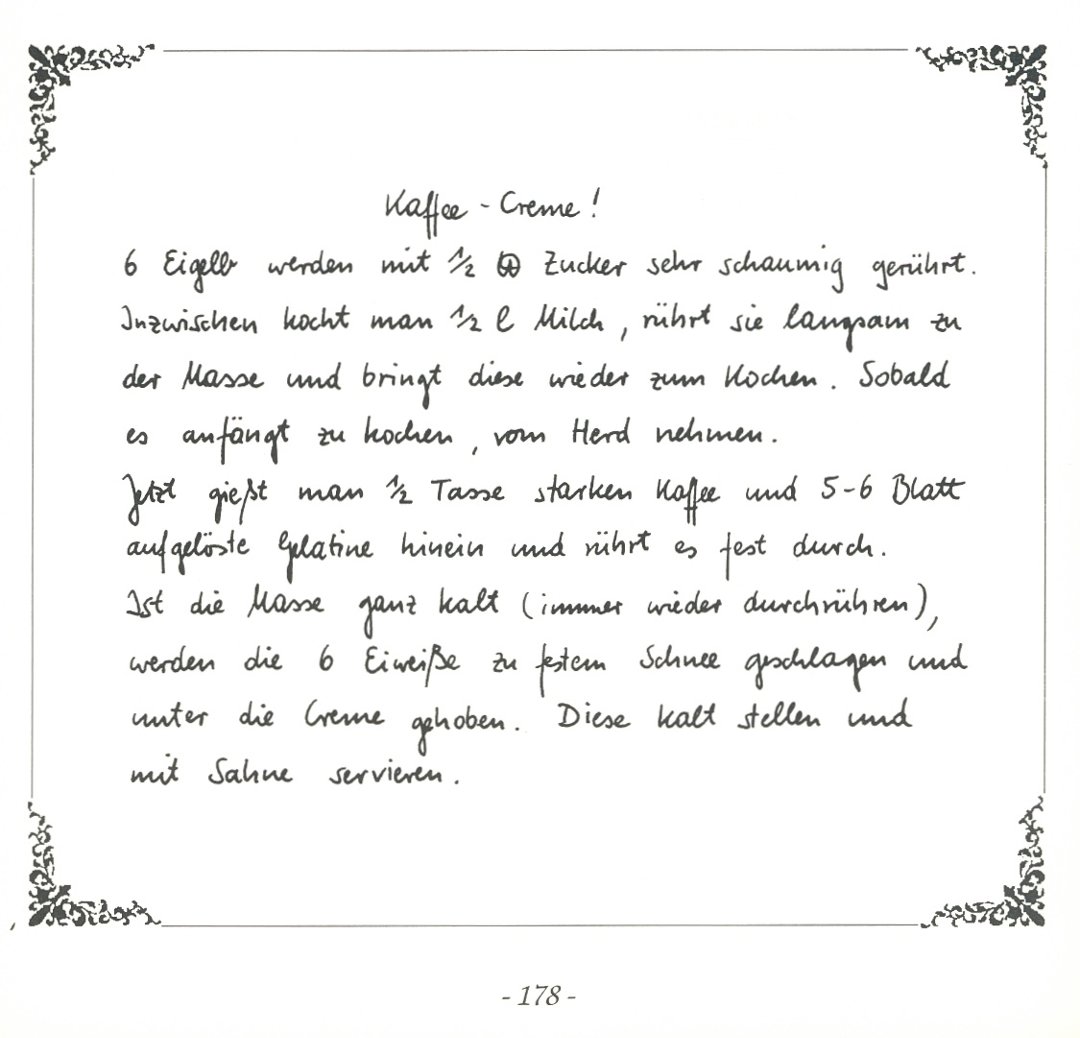 Kaffee - Creme!
6 Eigelb werden mit 1/2 ℔ Zucker sehr schaumig gerührt.
Inzwischen kocht man 1/2 l Milch, rührt sie langsam zu
der Masse und bringt diese wieder zum Kochen. Sobald
es anfängt zu kochen, vom Herd nehmen.
Jetzt gießt man 1/2 Tasse starken Kaffee und 5-6 Blatt
aufgelöste Gelatine hinein und rührt es fest durch.
Ist die Masse ganz kalt (immer wieder durchrühren),
werden die 6 Eiweiße zu festem Schnee geschlagen und
unter die Creme gehoben. Diese kalt stellen und
mit Sahne servieren.
- 178 -